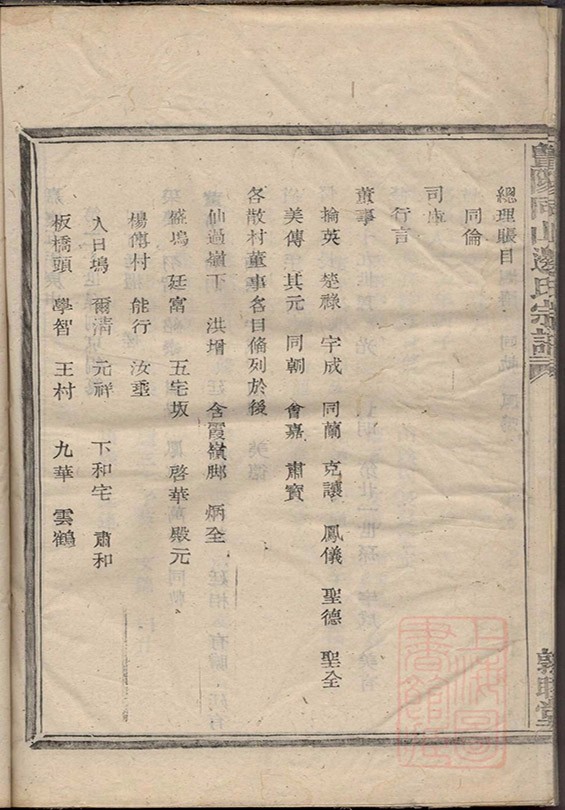 同山邊氏宗譜
總理賬目
同倫
司庫
行言
董事
掄英 楚祿 宇成 同蘭 克讓 鳳儀 聖德 聖全
美傳 其元 同朝 會嘉 肅寳
各散村董事各目俻列於後
仙過嶺下 洪增 含霞嶺脚 炳全
盛塢 廷富 五宅坂 啓華 殿元
楊傳村 能行 汝埀
大日塢 爾清 元祥 下和宅 肅和
板橋頭 學智 王村 九華 雲鶴
敦睦堂
上海圖書館藏